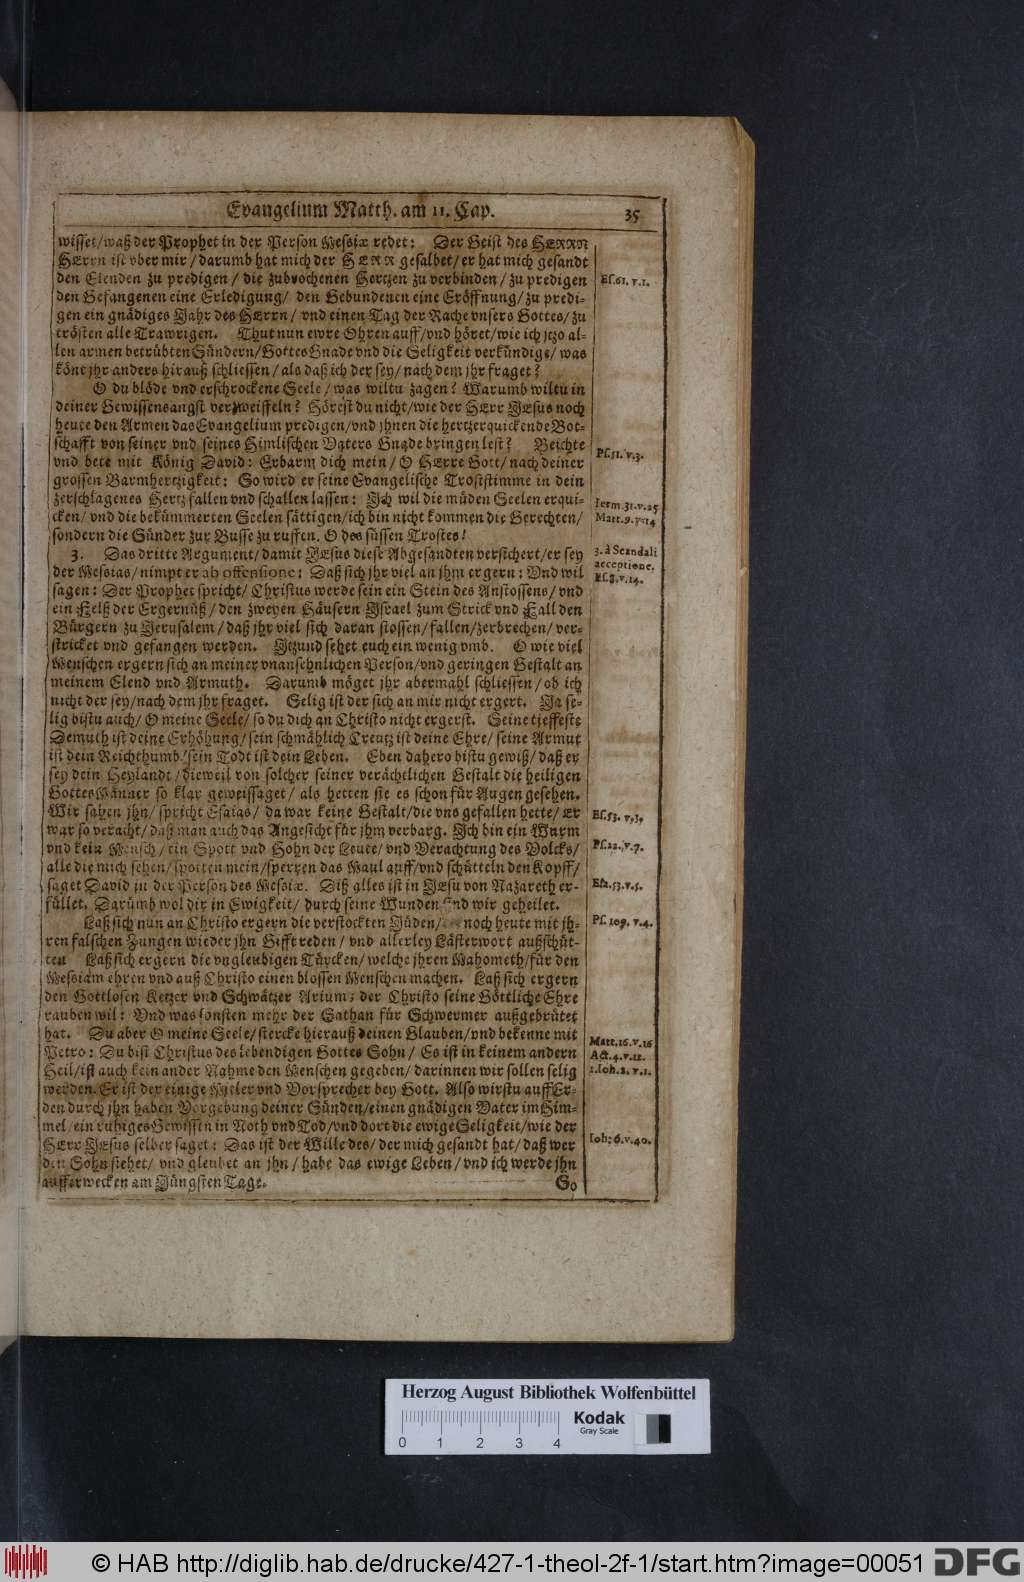 Evangelium Matth. am 11. Cap. 35
wisset/ waß der Prophet in der Person Messiæ redet: Der Geist des HERRN
HErrn ist vber mir/ darumb hat mich der HERR gesalbet/ er hat mich gesandt
den Elenden zu predigen/ die zubrochenen Hertzen zu verbinden/ zu predigen
Es. 61. v. 1.
den Gefangenen eine Erledigung/ den Gebundenen eine Eröffnung/ zu predi-
gen ein gnädiges Jahr des HErrn/ vnd einen Tag der Rache vnsers Gottes/ zu
trösten alle Trawrigen. Thut nun ewre Ohren auff/ vnd höret/ wie ich jtzo al-
len armen betrübten Sündern/ Gottes Gnade vnd die Seligkeit verkündige/ was
könt jhr anders hierauß schliessen/ als daß ich der sey/ nach dem jhr fraget?
O du blöde vnd erschrockene Seele/ was wiltu zagen? Warumb wiltu in
deiner Gewissensangst verzweiffeln? Hörest du nicht/ wie der HErr JEsus noch
heute den Armen das Evangelium predigen/ vnd jhnen die hertzerquickende Bot-
schafft von seiner vnd seines Himlischen Vaters Gnade bringen lest? Beichte
vnd bete mit König David: Erbarm dich mein/ O HErre Gott/ nach deiner
Ps. 51. v. 3.
grossen Barmhertzigkeit: So wird er seine Evangelische Troststimme in dein
zerschlagenes Hertz fallen vnd schallen lassen: Jch wil die müden Seelen erqui-
Jerem. 31. v. 25
cken/ vnd die bekümmerten Seelen sättigen/ ich bin nicht kommen die Gerechten/
Matt. 9. v. 14
sondern die Sünder zur Busse zu ruffen. O des süssen Trostes!
3. Das dritte Argument/ damit JEsus diese Abgesandten versichert/ er sey
3. à Scandali
acceptione.
der Messias/ nimpt er ab offensione: Daß sich jhr viel an jhm ergern: Vnd wil
Es. 8. v. 14.
sagen: Der Prophet spricht/ Christus werde sein ein Stein des Anstossens/ vnd
ein Felß der Ergernüß/ den zweyen Häusern Jsrael zum Strick vnd Fall den
Bürgern zu Jerusalem/ daß jhr viel sich daran stossen/ fallen/ zerbrechen/ ver-
stricket vnd gefangen werden. Jtzund sehet euch ein wenig vmb. O wie viel
Menschen ergern sich an meiner vnansehnlichen Person/ vnd geringen Gestalt an
meinem Elend vnd Armuth. Darumb möget jhr abermahl schliessen/ ob ich
nicht der sey/ nach dem jhr fraget. Selig ist der sich an mir nicht ergert. Ja se-
lig bistu auch/ O meine Seele/ so du dich an Christo nicht ergerst. Seine tieffeste
Demuth ist deine Erhöhung/ sein schmählich Creutz ist deine Ehre/ seine Armut
ist dein Reichthumb/ sein Todt ist dein Leben. Eben dahero bistu gewiß/ daß er
sey dein Heylandt/ dieweil von solcher seiner verächtlichen Gestalt die heiligen
Gottes Männer so klar geweissaget/ als hetten sie es schon für Augen gesehen.
Wir sahen jhn/ spricht Esaias/ da war keine Gestalt/ die vns gefallen hette/ Er
Es. 53. v. 3.
war so veracht/ daß man auch das Angesicht für jhm verbarg. Jch bin ein Wurm
vnd kein Mensch/ ein Spott vnd Hohn der Leute/ vnd Verachtung des Volcks/
Ps. 22. v. 7.
alle die mich sehen/ spotten mein/ sperren das Maul auff/ vnd schütteln den Kopff/
saget David in der Person des Messiæ. Diß alles ist in JEsu von Nazareth er-
Esa. 53. v. 5.
füllet. Darümb wol dir in Ewigkeit/ durch seine Wunden sind wir geheilet.
Laß sich nun an Christo ergern die verstockten Jüden/ noch heute mit jh-
Ps. 109. v. 4.
ren falschen Zungen wieder jhn Gifft reden/ vnd allerley Lästerwort außschüt-
ten Laß sich ergern die vngleubigen Türcken/ welche jhren Mahometh/ für den
Messiam ehren vnd auß Christo einen blossen Menschen machen. Laß sich ergern
den Gottlosen Ketzer vnd Schwätzer Arium/ der Christo seine Göttliche Ehre
rauben wil: Vnd was sonsten mehr der Sathan für Schwermer außgebrütet
hat. Du aber O meine Seele/ stercke hierauß deinen Glauben/ vnd bekenne mit
Petro: Du bist Christus des lebendigen Gottes Sohn/ Es ist in keinem andern
Matt. 16. v. 16
Act. 4. v. 12.
Heil/ ist auch kein ander Nahme den Menschen gegeben/ darinnen wir sollen selig
1. Joh. 2. v. 1.
werden. Er ist der einige Mitler vnd Vorsprecher bey Gott. Also wirstu auff Er-
den durch jhn haben Vorgebung deiner Sünden/ einen gnädigen Vater im Him-
mel/ ein ruhiges Gewissen in Noth vnd Tod/ vnd dort die ewige Seligkeit/ wie der
HErr JEsus selber saget: Das ist der Wille des/ der mich gesandt hat/ daß wer
Joh. 6. v. 40.
den Sohn siehet/ vnd gleubet an jhn/ habe das ewige Leben/ vnd ich werde jhn
aufferwecken am Jüngsten Tage.
So
Herzog August Bibliothek Wolfenbüttel
Kodak
Gray Scale
0 1 2 3 4
© HAB http://diglib.hab.de/drucke/427-1-theol-2f-1/start.htm?image=00051
DFG